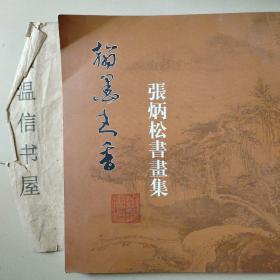 翰墨书香
張炳松書畫集
温信书屋